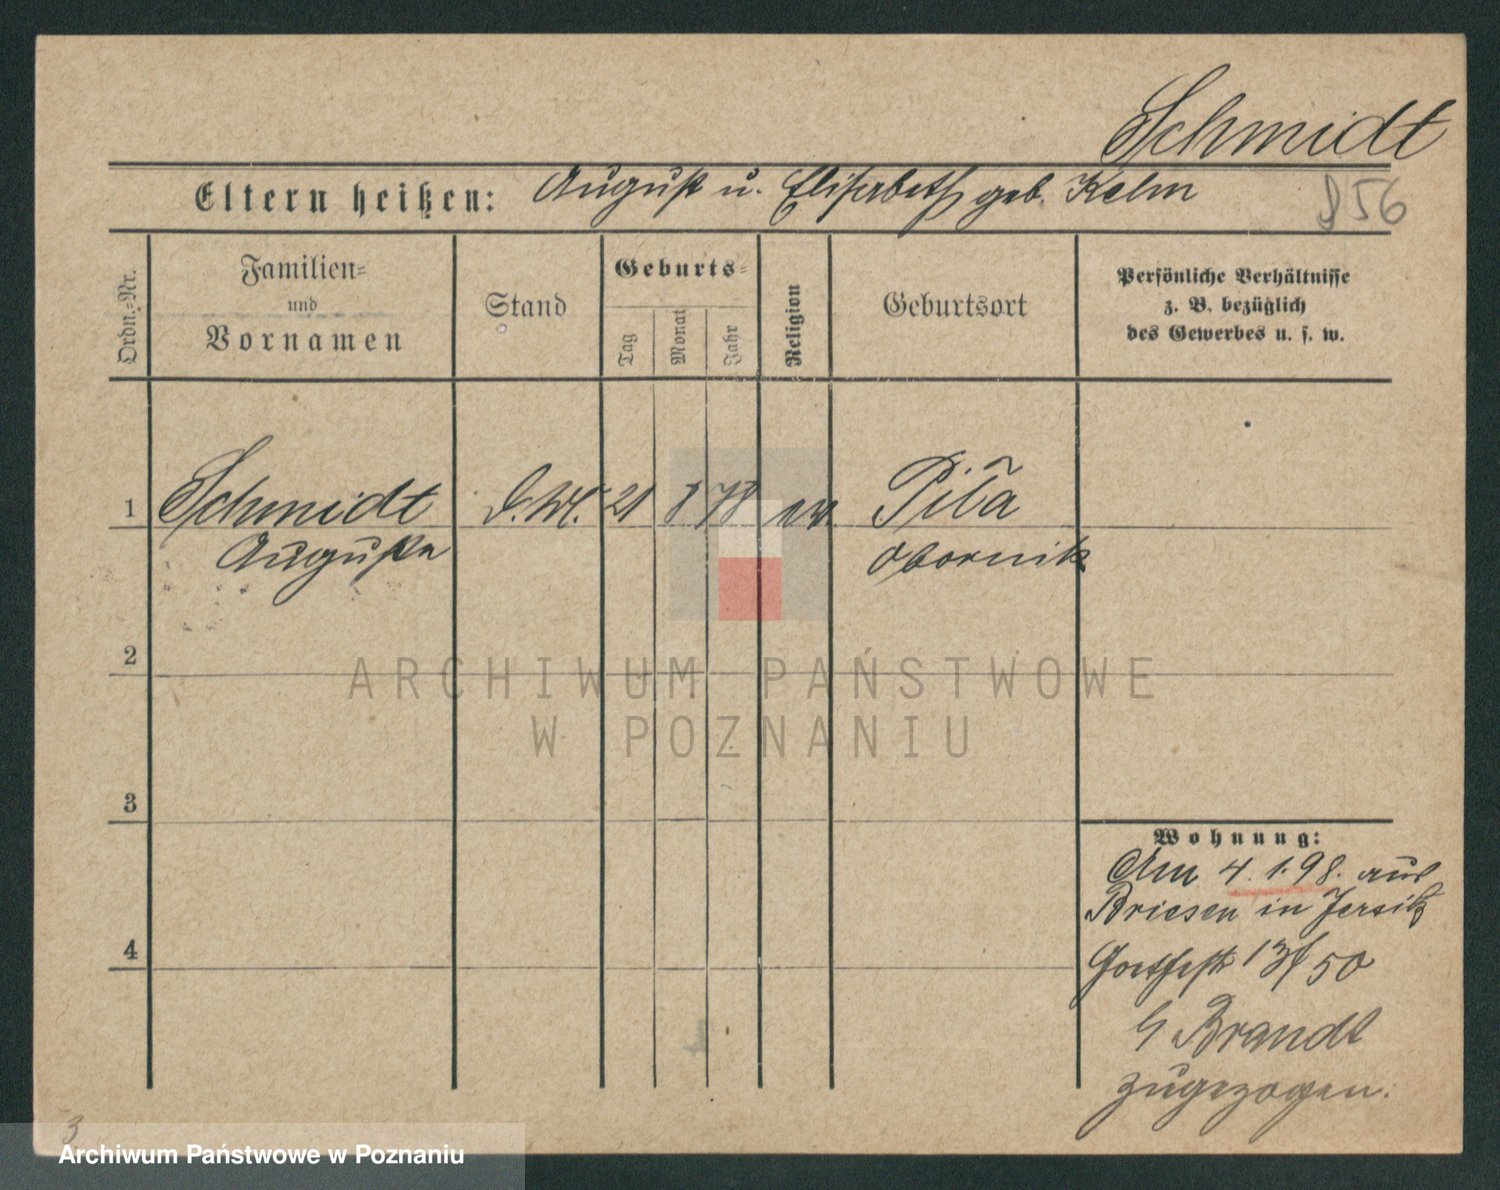 Schmidt
Eltern heißen: August u. Elisabeth geb. Kelm
856
Ordn.-Nr.
Familien-
und
Vornamen
Stand
Geburts-
Tag
Monat
Jahr
Religion
Geburtsort
Persönliche Verhältnisse
z. B. bezüglich
des Gewerbes u. s. w.
1 Schmidt 21 8 78 ev. Pila
Auguste Obornik
2
ARCHIWUM PAŃSTWOWE
W POZNANIU
3
Wohnung:
Am 4.1.98. aus
Briesen in Jersitz
50
4
Brandt
zugezogen.
3
Archiwum Państwowe w Poznaniu